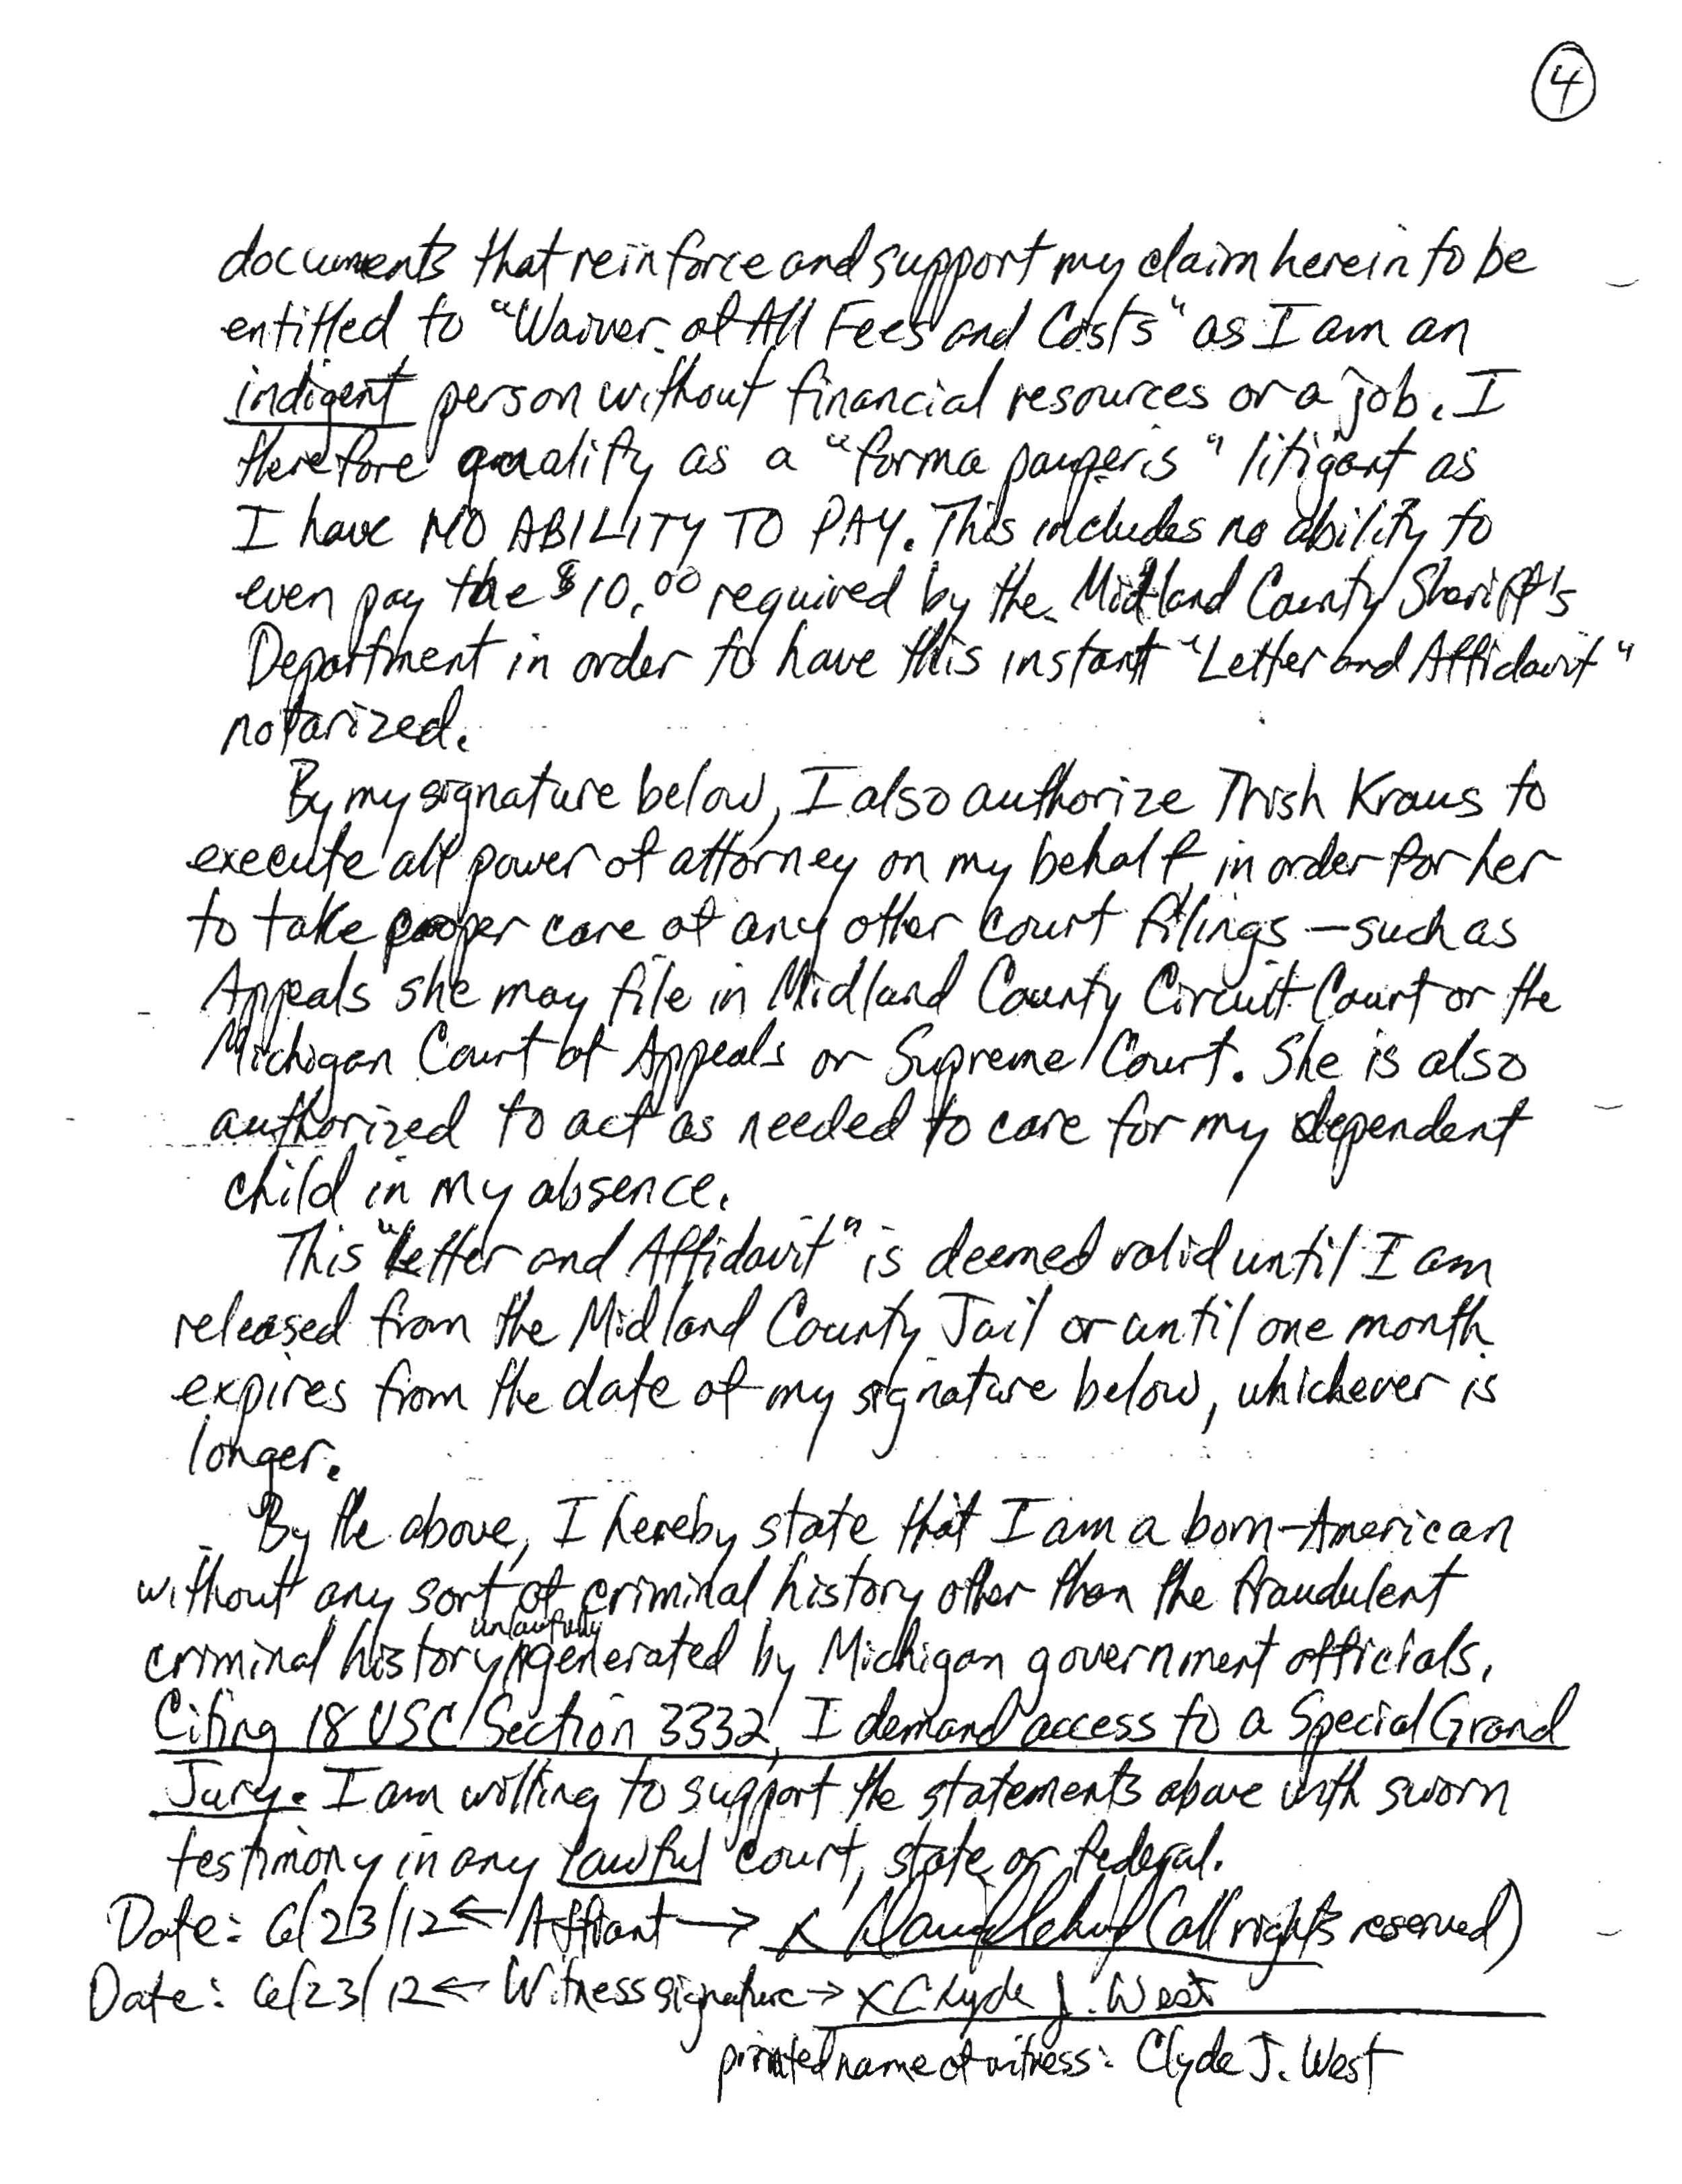 4
documents that reinforce and support my claim herein to be
entitled to "Waiver of All Fees and Costs" as I am an
indigent person without financial resources or a job. I
therefore qualify as a "forma pauperis" litigant as
I have NO ABILITY TO PAY. This includes no ability to
even pay the $10.00 required by the Midland County Sheriff's
Department in order to have this instant "Letter and Affidavit"
notarized.
By my signature below, I also authorize Trish Kraus to
execute all power of attorney on my behalf in order for her
to take proper care of any other court filings – such as
Appeals she may file in Midland County Circuit Court or the
Michigan Court of Appeals or Supreme Court. She is also
authorized to act as needed to care for my dependent
child in my absence.
This "Letter and Affidavit" is deemed valid until I am
released from the Midland County Jail or until one month
expires from the date of my signature below, whichever is
longer.
By the above, I hereby state that I am a born-American
without any sort of criminal history other than the fraudulent
unlawfully
criminal history generated by Michigan government officials.
Citing 18 USC Section 3332, I demand access to a Special Grand
Jury. I am willing to support the statements above with sworn
testimony in any lawful court, state or federal.
Date: 6/23/12 ← Affiant → x (all rights reserved)
Date: 6/23/12 ← Witness signature → x Clyde J. West
printed name of witness: Clyde J. West